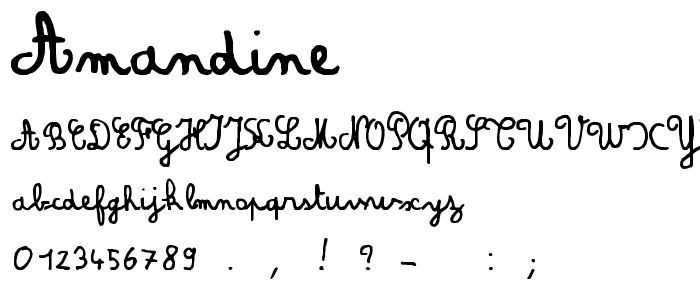 Amandine
ABCDEFGHIJKLMNOPQRSTUVWXY
abcdefghijklmnopqrstuvwxyz
0123456789 . , ! ? - : ;